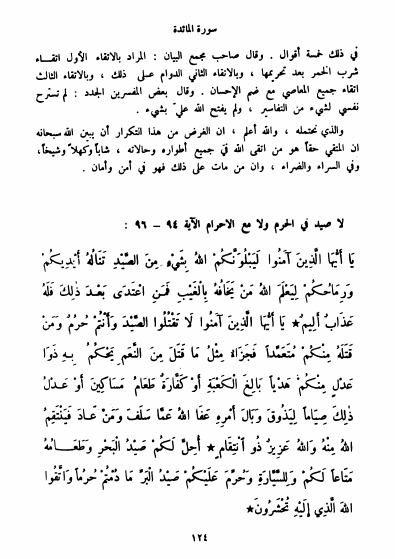 سورة المائدة
في ذلك خمسة أقوال . وقال صاحب مجمع البيان : المراد بالاتقاء الأول اتقـاء
شرب الخمر بعد تحريمها ، وبالاتقاء الثاني الدوام عـلى ذلك ، وبالاتقاء الثالث
اتقاء جميع المعاصي مع ضم الإحسان . وقال بعض المفسرين الجدد : لم تسترح
نفسي لشيء من التفاسير ، ولم يفتح الله عليّ بشيء .
والذي نحتمله ، والله أعلم ، ان الغرض من هذا التكرار أن يبين الله سبحانه
ان المتقي حقاً هو من اتقى الله في جميع أطواره وحالاته ، شاباً وكهلاً وشيخاً،
وفي السراء والضراء ، وان من مات على ذلك فهو في أمن وأمان .
لا صيد في الحرم ولا مع الاحرام الآية ٩٤ – ٩٦ :
يَا أَيُّهَا الَّذِينَ آمَنُوا لَيَبْلُوَنَّكُمُ اللهُ بِشَيْءٍ مِنَ الصَّيْدِ تَنَالُهُ أَيْدِيكُمْ
وَرِمَاحُكُمْ لِيَعْلَمَ اللهُ مَنْ يَخَافُهُ بِالْغَيْبِ فَمَنِ اعْتَدَى بَعْدَ ذٰلِكَ فَلَهُ
عَذَابٌ أَلِيمٌ★ يَا أَيُّهَا الَّذِينَ آمَنُوا لَا تَقْتُلُوا الصَّيْدَ وَأَنْتُمْ حُرُمٌ وَمَنْ
قَتَلَهُ مِنْكُمْ مُتَعَمِّداً فَجَزَاءٌ مِثْلُ مَا قَتَلَ مِنَ النَّعَمِ يَحْكُمُ بِهِ ذَوَا
عَدْلٍ مِنْكُمْ هَدْياً بَالِغَ الْكَعْبَةِ أَوْ كَفَّارَةٌ طَعَامُ مَسَاكِينَ أَوْ عَدْلُ
ذٰلِكَ صِيَاماً لِيَذُوقَ وَبَالَ أَمْرِهِ عَفَا اللهُ عَمَّا سَلَفَ وَمَنْ عَادَ فَيَنْتَقِمُ
اللهُ مِنْهُ وَاللهُ عَزِيزٌ ذُو انْتِقَامٍ★ أُحِلَّ لَكُمْ صَيْدُ الْبَحْرِ وَطَعَامُهُ
مَتَاعاً لَكُمْ وَلِلسَّيَّارَةِ وَحُرِّمَ عَلَيْكُمْ صَيْدُ الْبَرِّ مَا دُمْتُمْ حُرُماً وَاتَّقُوا
اللهَ الَّذِي إِلَيْهِ تُحْشَرُونَ★
١٢٤